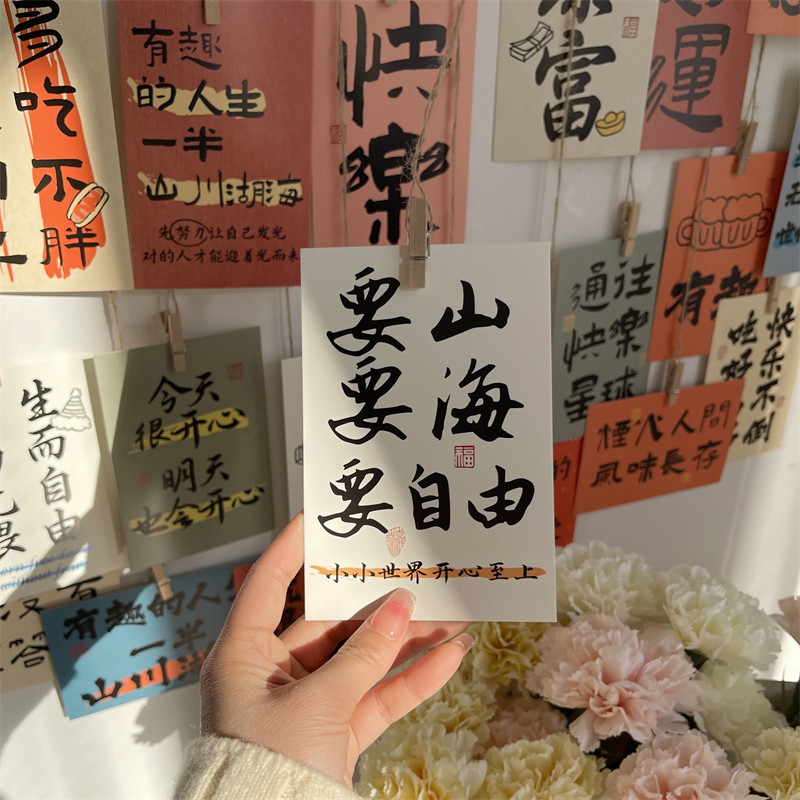 多吃
不胖
有趣
的人生
一半
山川湖海
先努力让自己发光
对的人才能迎着光而来
快
樂
富
運
要山
要海
福
要自由
小小世界开心至上
通往
快樂
星球
有趣
快乐不倒
煙火人間
風味長存
生而自由
今天
很开心
明天
也会开心
有趣的人生
一半
山川